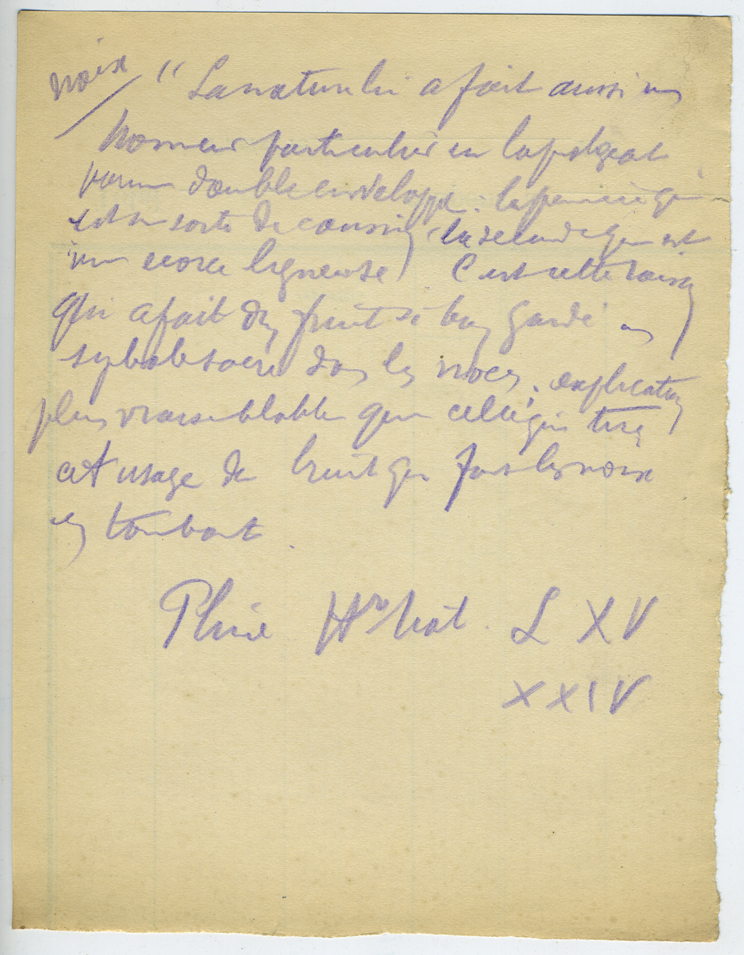 noix
" La nature lui a fait aussi un
honneur particulier en la protégeant
par une double enveloppe : la première qui
est une sorte de coussin, la seconde qui est
une écorce ligneuse) C'est cette raison
qui a fait du fruit si bien gardé un
symbole sacré dans les noces, explication
plus vraisemblable que celle qui tire
cet usage du bruit que font les noix
en tombant.
Pline Hre Nat. L XV
XXIV